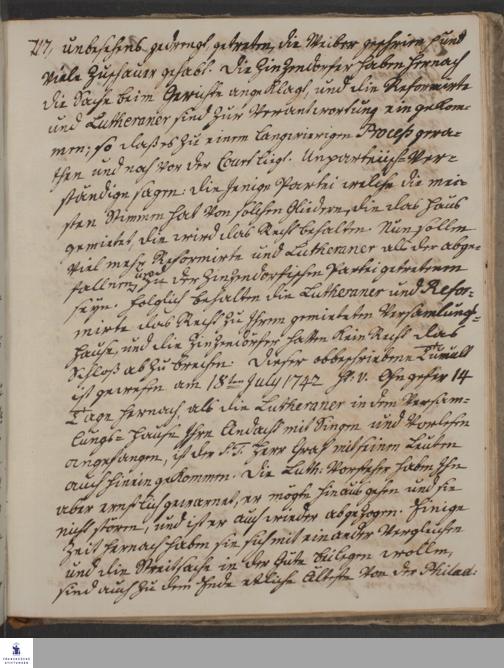 417, unbesehens gedrengt, getreten, die Weiber geschrien, und
viele Zuschauer gehabt. Die Zinzendorfer haben hernach
die Sache beim Gerichte angeklagt, und die Reformirte
und Lutheraner sind zur Verantwortung eingekom-
men, so daß es zu einem langwierigen Proceß gera-
then und noch vor der Court liegt. Unpartheiisch Ver-
ständige sagen: diejenige Partei welche die mei-
sten Stimmen hat von solchen Gliedern, die das Haus
gemietet, die wird das Recht behalten. Nun sollen
viel mehr Reformirte und Lutheraner als der abge-
fallnen und zu der Zinzendorfischen Partei getretenen
seyn. folglich behalten die Lutheraner und Refor-
mirte das Recht zu ihrem gemieteten Versamlungs-
Hause, und die Zinzendorfer hatten kein Recht das
Schloß abzubrechen. Dieser obbeschriebene Tumult
ist gewesen am 18ten July 1742 St. v. Ohngefer 14
Tage hernach, als die Lutheraner in dem Versam-
lungs-Hause ihre Andacht mit Singen und Vorlesen
angefangen, ist der S. T. Herr Graf mit seinen Leuten
auch hinein gekommen. Die Luth. Vorsteher haben Ihn
aber ernstlich gewarnet, er mögte hinaus gehen und sie
nicht stören, und ist er auch wieder abgezogen. Einige
Zeit hernach haben sie sich mit einander verglichen
und die Streitsache in der Güte beilegen wollen,
sind auch zu dem Ende etliche Älteste von der Philad:
FRANCKESCHE
STIFTUNGEN